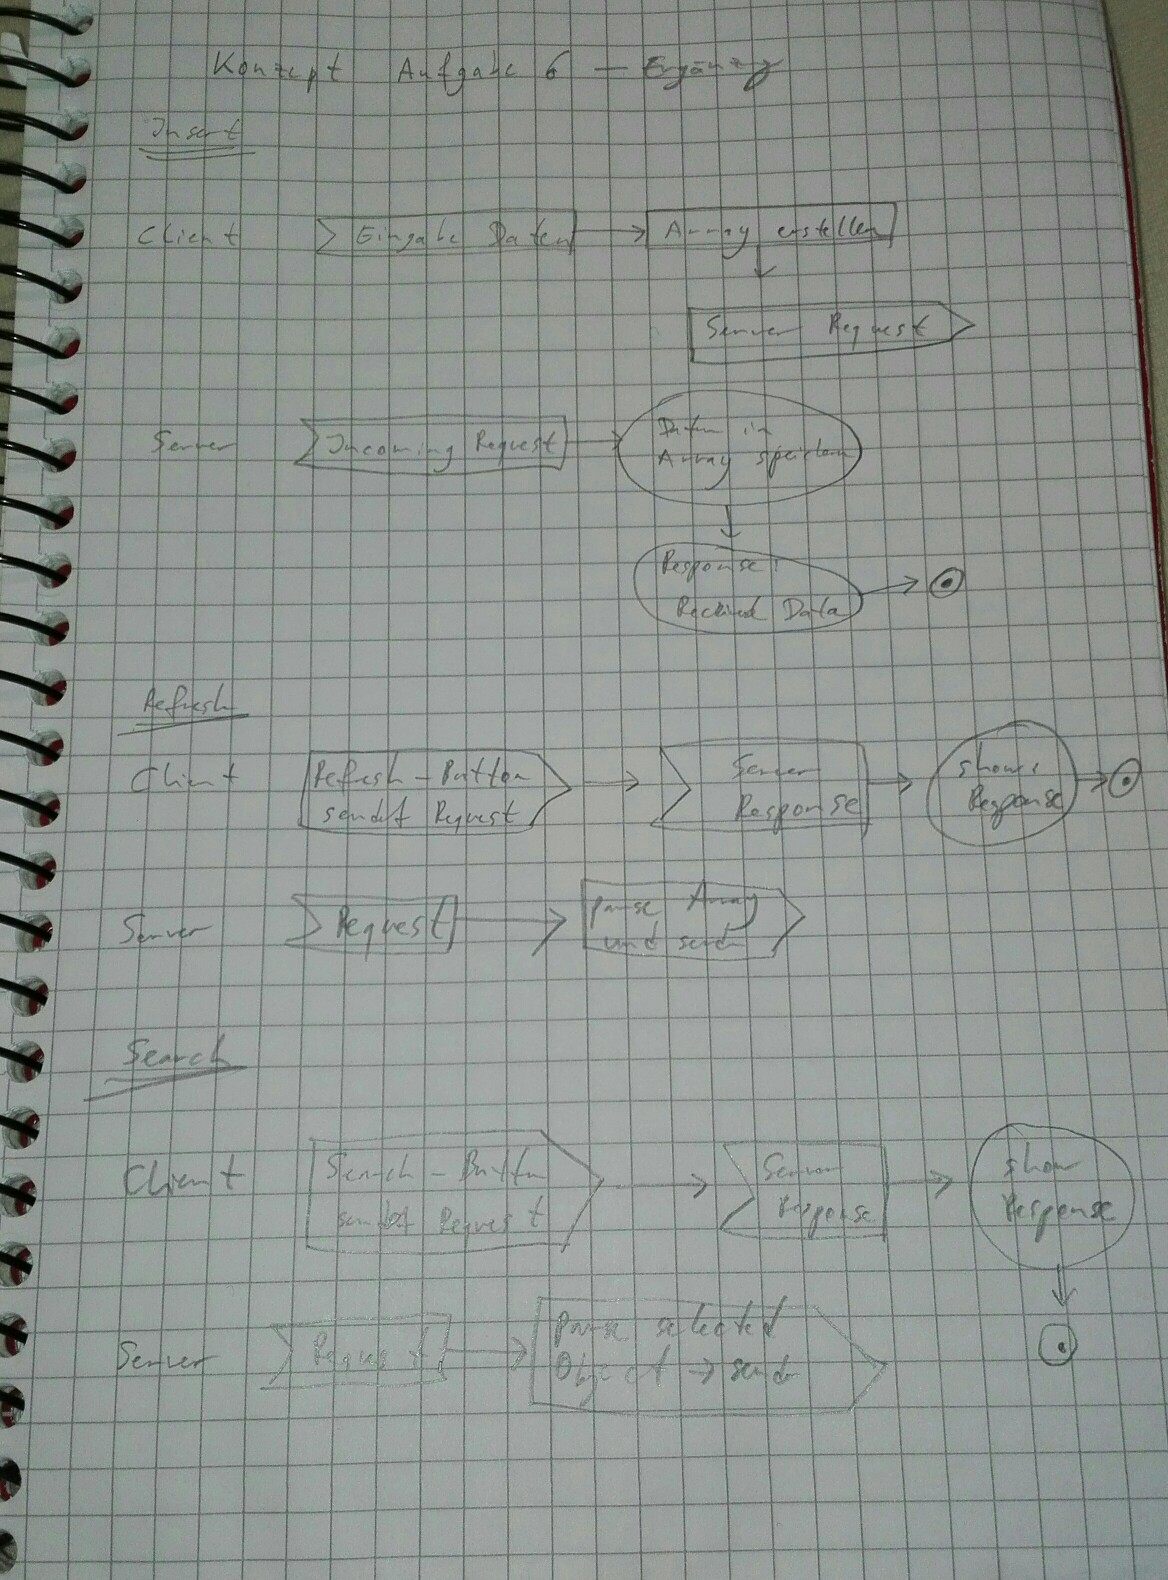 Konzept Aufgabe 6 –
Insert
Client Eingabe Daten Array erstellen
Server Request
Server Incoming Request Daten in
Array speichern
Response:
Received Data
Refresh
Client Refresh-Button Server show:
sendet Request Response Response
Server Request parse Array
und send
Search
Client Search-Button Server show
sendet Request Response Response
Server Request parse selected
Object → send